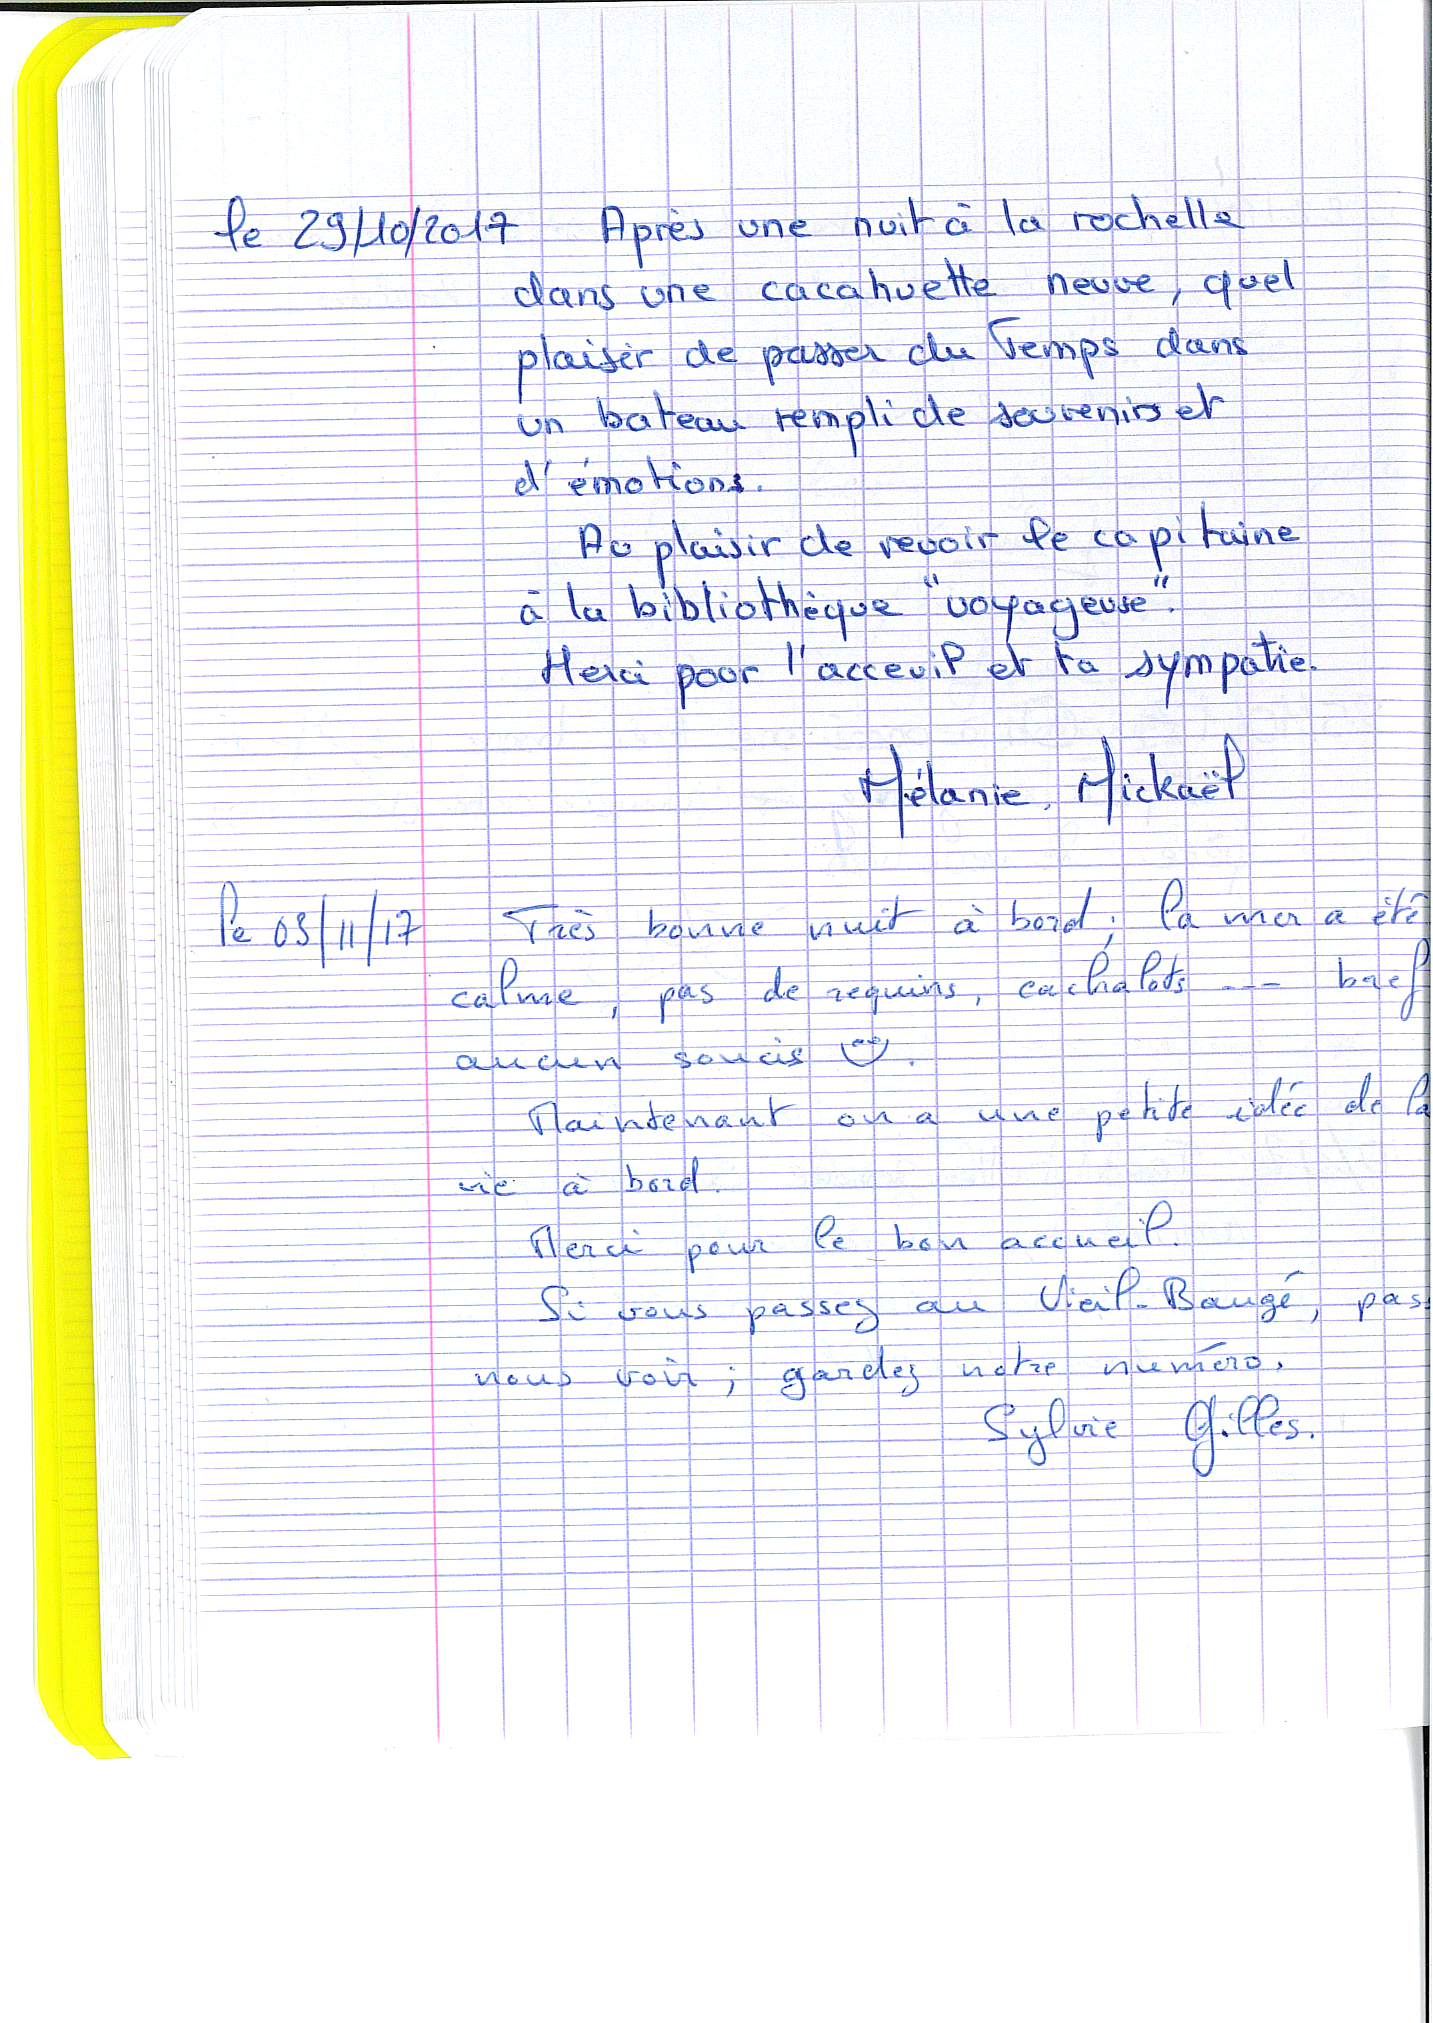 le 29/10/2017 Après une nuit à la rochelle
dans une cacahuette neuve, quel
plaisir de passer du Temps dans
un bateau rempli de souvenirs et
d'émotions.
Au plaisir de revoir le capitaine
à la bibliothèque "voyageuse".
Merci pour l'acceuil et ta sympatie.
Mélanie, Mickaël
le 03/11/17 Très bonne nuit à bord, la mer a été
calme, pas de requins, cachalots --- bref
aucun soucis ☺.
Maintenant on a une petite idée de la
vie à bord.
Merci pour le bon accueil.
Si vous passez au Vieil-Baugé, pas
nous voir ; gardez notre numéro.
Sylvie Gilles.